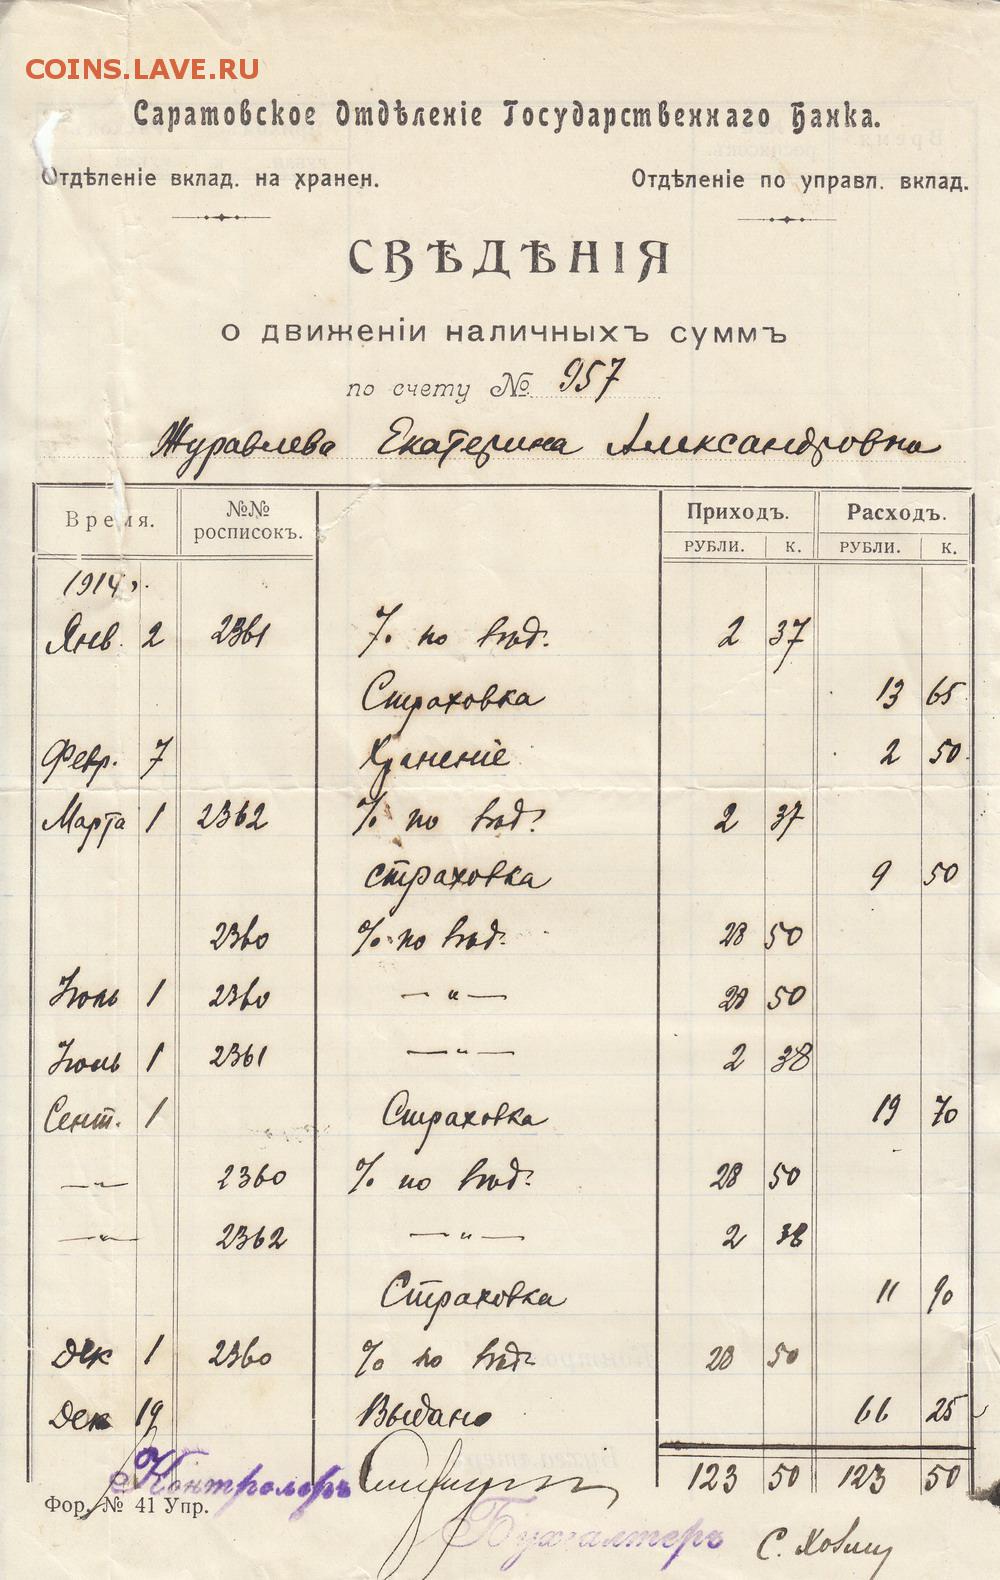 COINS.LAVE.RU
Саратовское Отдѣленіе Государственнаго Банка.
Отдѣленіе вклад. на хранен. Отдѣленіе по управл. вклад.
СВѢДѢНІЯ
о движеніи наличныхъ суммъ
по счету № 957
Журавлева Екатерина Александровна
Время. №№ росписокъ. Приходъ. Расходъ.
РУБЛИ. К. РУБЛИ. К.
1914 г.
Янв. 2 2361 % по вклд. 2 37
Страховка 13 65
Февр. 7 Храненіе 2 50
Марта 1 2362 % по вклд. 2 37
страховка 9 50
2360 % по вклд. 28 50
Іюнь 1 2360 — " — 28 50
Іюль 1 2361 — " — 2 38
Сент. 1 Страховка 19 70
— " — 2360 % по вклд. 28 50
— " — 2362 — " — 2 38
Страховка 11 90
Дек 1 2360 % по вклд. 28 50
Дек 19 Выдано 66 25
123 50 123 50
Контролеръ
Фор. № 41 Упр.
Бухгалтеръ С.